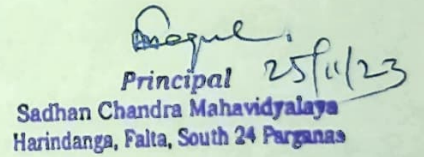 Principal 25/11/23
Sadhan Chandra Mahavidyalaya
Harindanga, Falta, South 24 Parganas